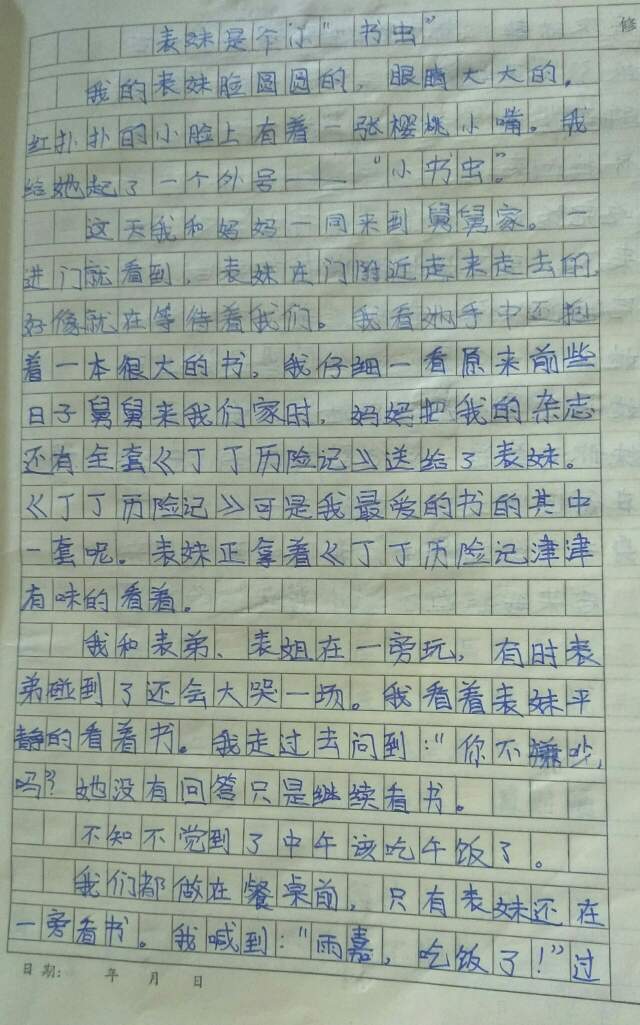 表妹是个小“书虫”
我的表妹脸圆圆的，眼睛大大的，
红扑扑的小脸上有着一张樱桃小嘴。我
给她起了一个外号——“小书虫”。
这天我和妈妈一同来到舅舅家。一
进门就看到，表妹在门附近走来走去的，
好像就在等待着我们。我看她手中还抱
着一本很大的书，我仔细一看原来前些
日子舅舅来我们家时，妈妈把我的杂志
还有全套《丁丁历险记》送给了表妹。
《丁丁历险记》可是我最爱的书的其中
一套呢。表妹正拿着《丁丁历险记津津
有味的看着。
我和表弟、表姐在一旁玩，有时表
弟碰到了还会大哭一场。我看着表妹平
静的看着书。我走过去问到：“你不嫌吵
吗？”她没有回答只是继续看书。
不知不觉到了中午该吃午饭了。
我们都做在餐桌前，只有表妹还在
一旁看书。我喊到：“雨嘉，吃饭了！”过
日期： 年 月 日
修